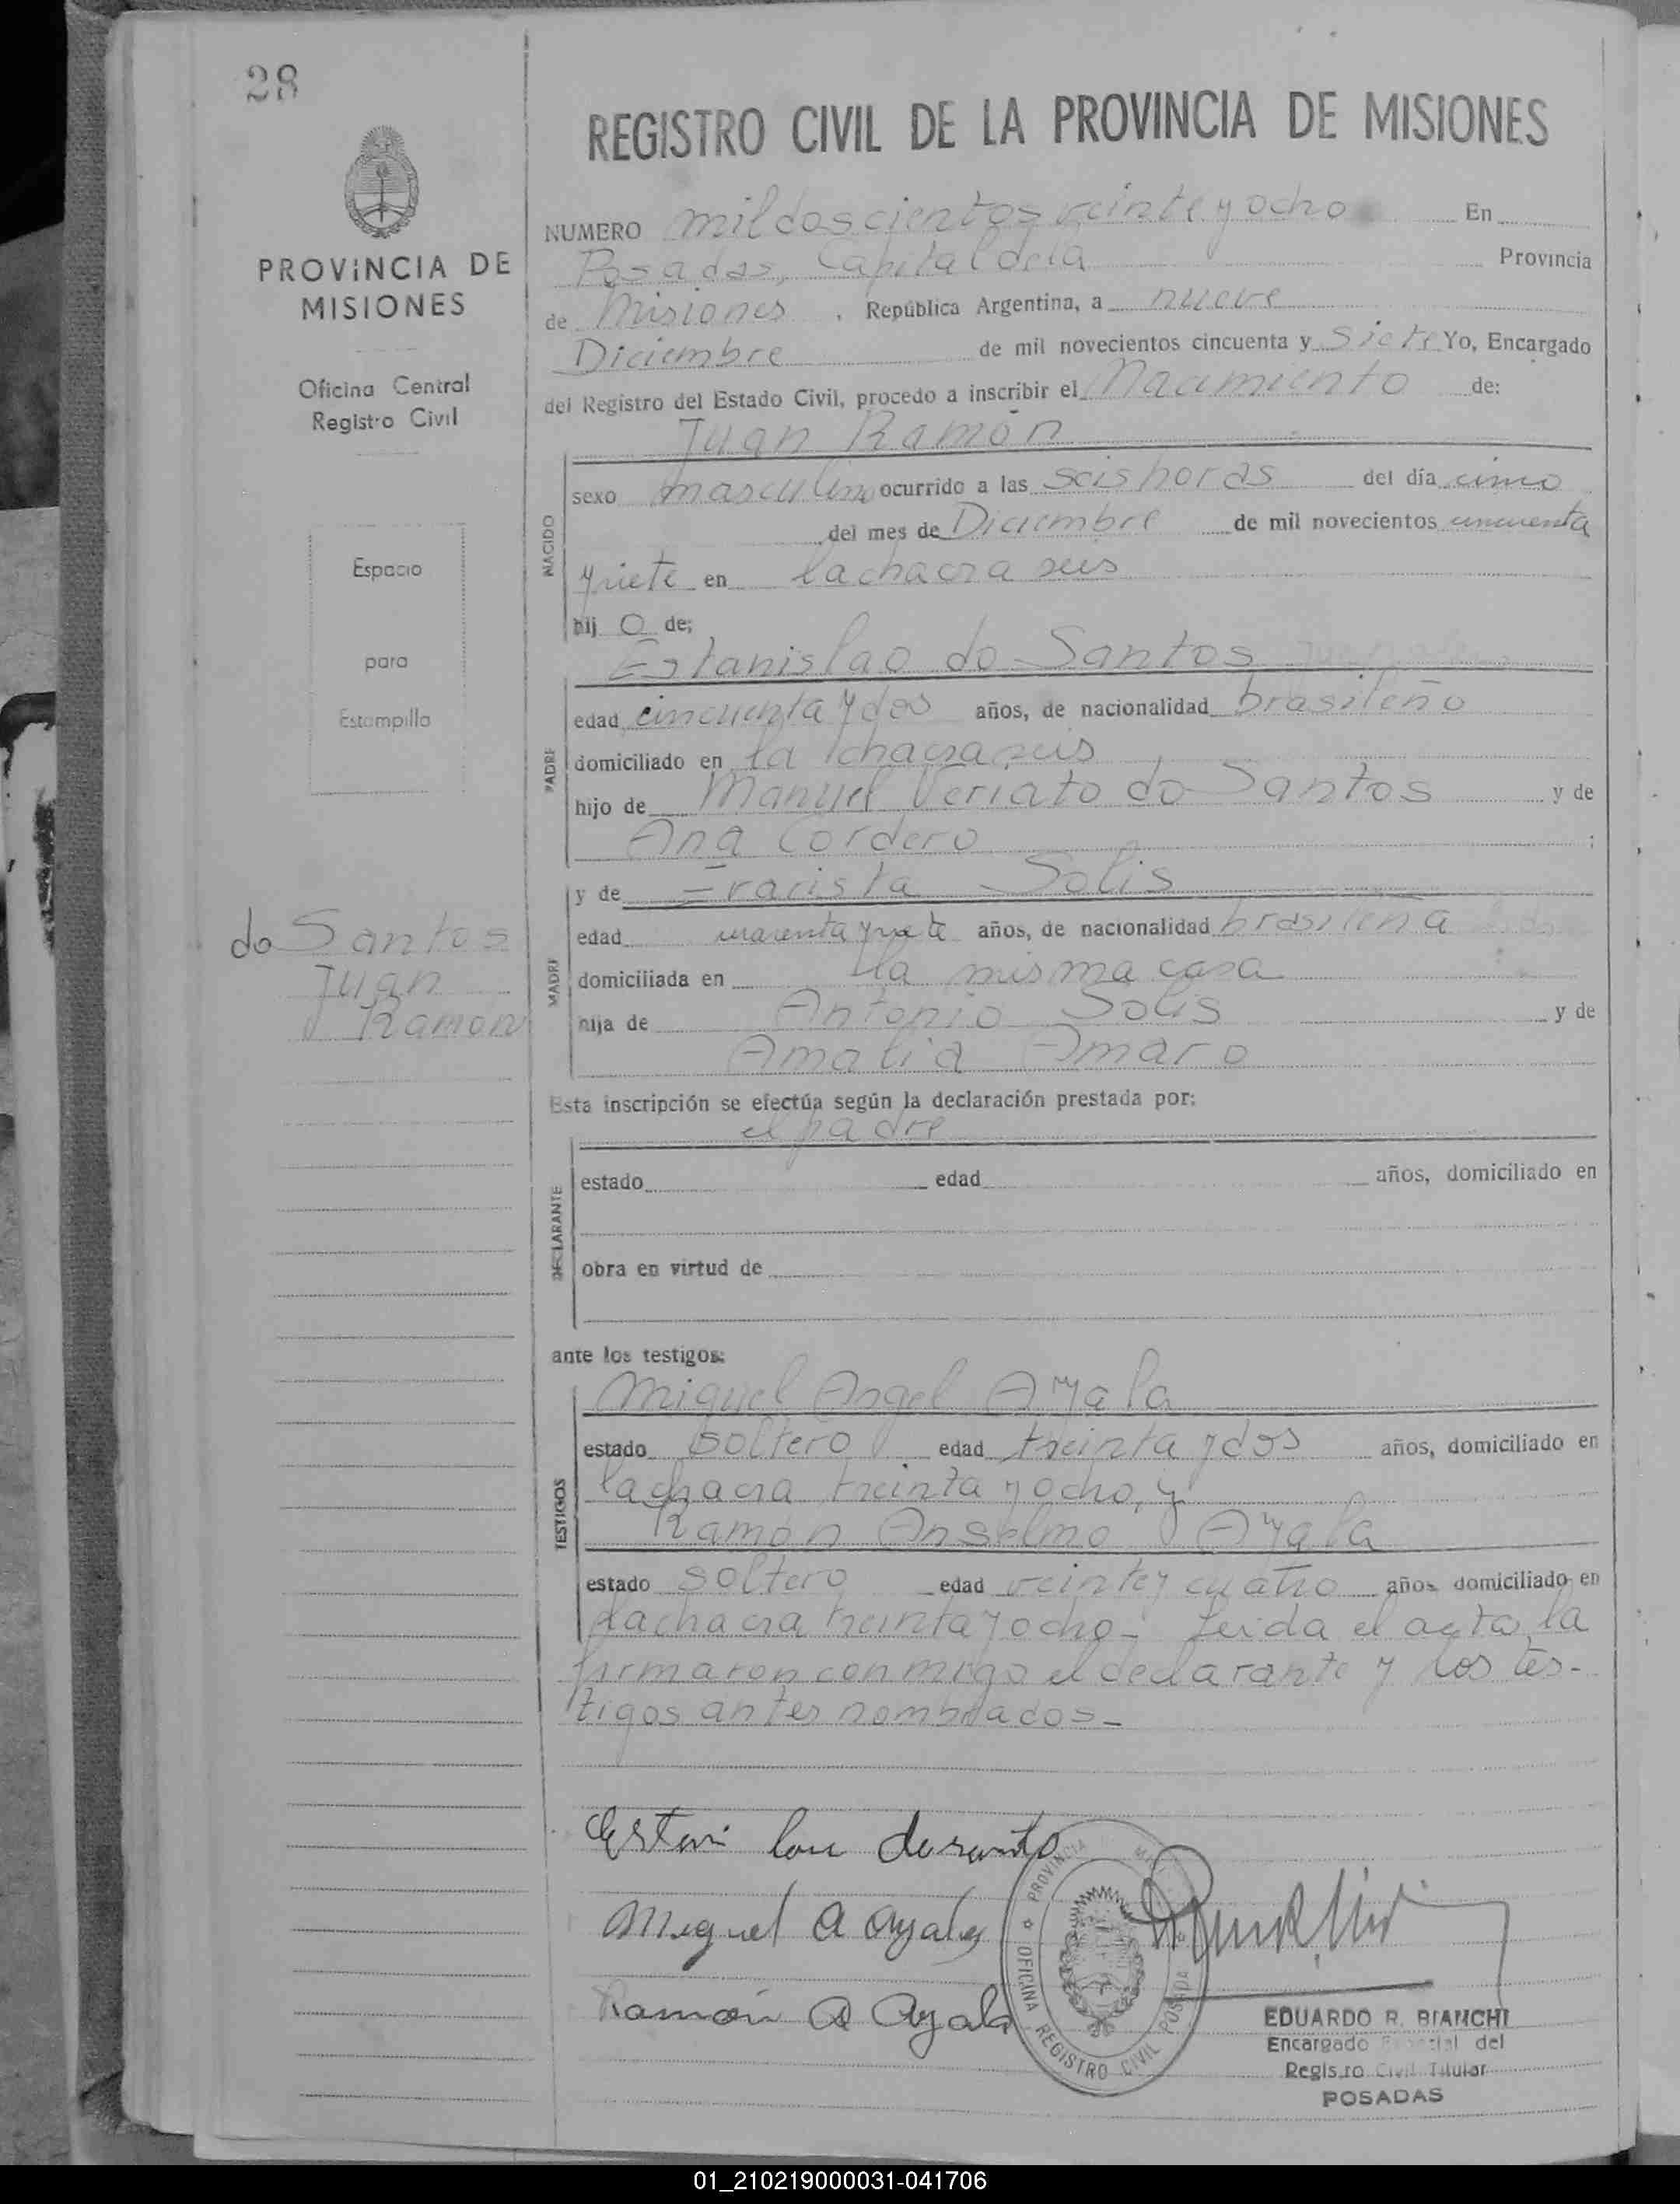 28
REGISTRO CIVIL DE LA PROVINCIA DE MISIONES
PROVINCIA DE
MISIONES
Oficina Central
Registro Civil
Espacio
para
Estampilla
do Santos
Juan
Ramon
NUMERO mil doscientos veinte y ocho En
Posadas, Capital de la Provincia
de Misiones, República Argentina, a nueve
Diciembre de mil novecientos cincuenta y siete Yo, Encargado
del Registro del Estado Civil, procedo a inscribir el Nacimiento de:
Juan Ramón
NACIDO
sexo masculino ocurrido a las seis horas del día cinco
del mes de Diciembre de mil novecientos cincuenta
y siete en la chacra seis
hij o de;
Estanislao do Santos
PADRE
edad cincuenta y dos años, de nacionalidad brasileño
domiciliado en la chacra seis
hijo de Manuel Veriato do Santos y de
Ana Cordero ;
y de Evarista Solis
MADRE
edad cuarenta y siete años, de nacionalidad brasileña
domiciliada en la misma casa
hija de Antonio Solis y de
Amalia Amaro
Esta inscripción se efectúa según la declaración prestada por:
el padre
DECLARANTE
estado edad años, domiciliado en
obra en virtud de
ante los testigos:
Miguel Angel Ayala
TESTIGOS
estado soltero edad treinta y dos años, domiciliado en
la chacra treinta y ocho, y
Ramón Anselmo Ayala
estado soltero edad veinte y cuatro años domiciliado en
la chacra treinta y ocho_ Leida el acta, la
firmaron conmigo el declarante y los tes-
tigos antes nombrados_
Miguel A Ayala
Ramón A Ayala
PROVINCIA
OFICINA REGISTRO CIVIL POSADAS
EDUARDO R. BIANCHI
Encargado del
Registro Civil Titular
POSADAS
01_210219000031-041706